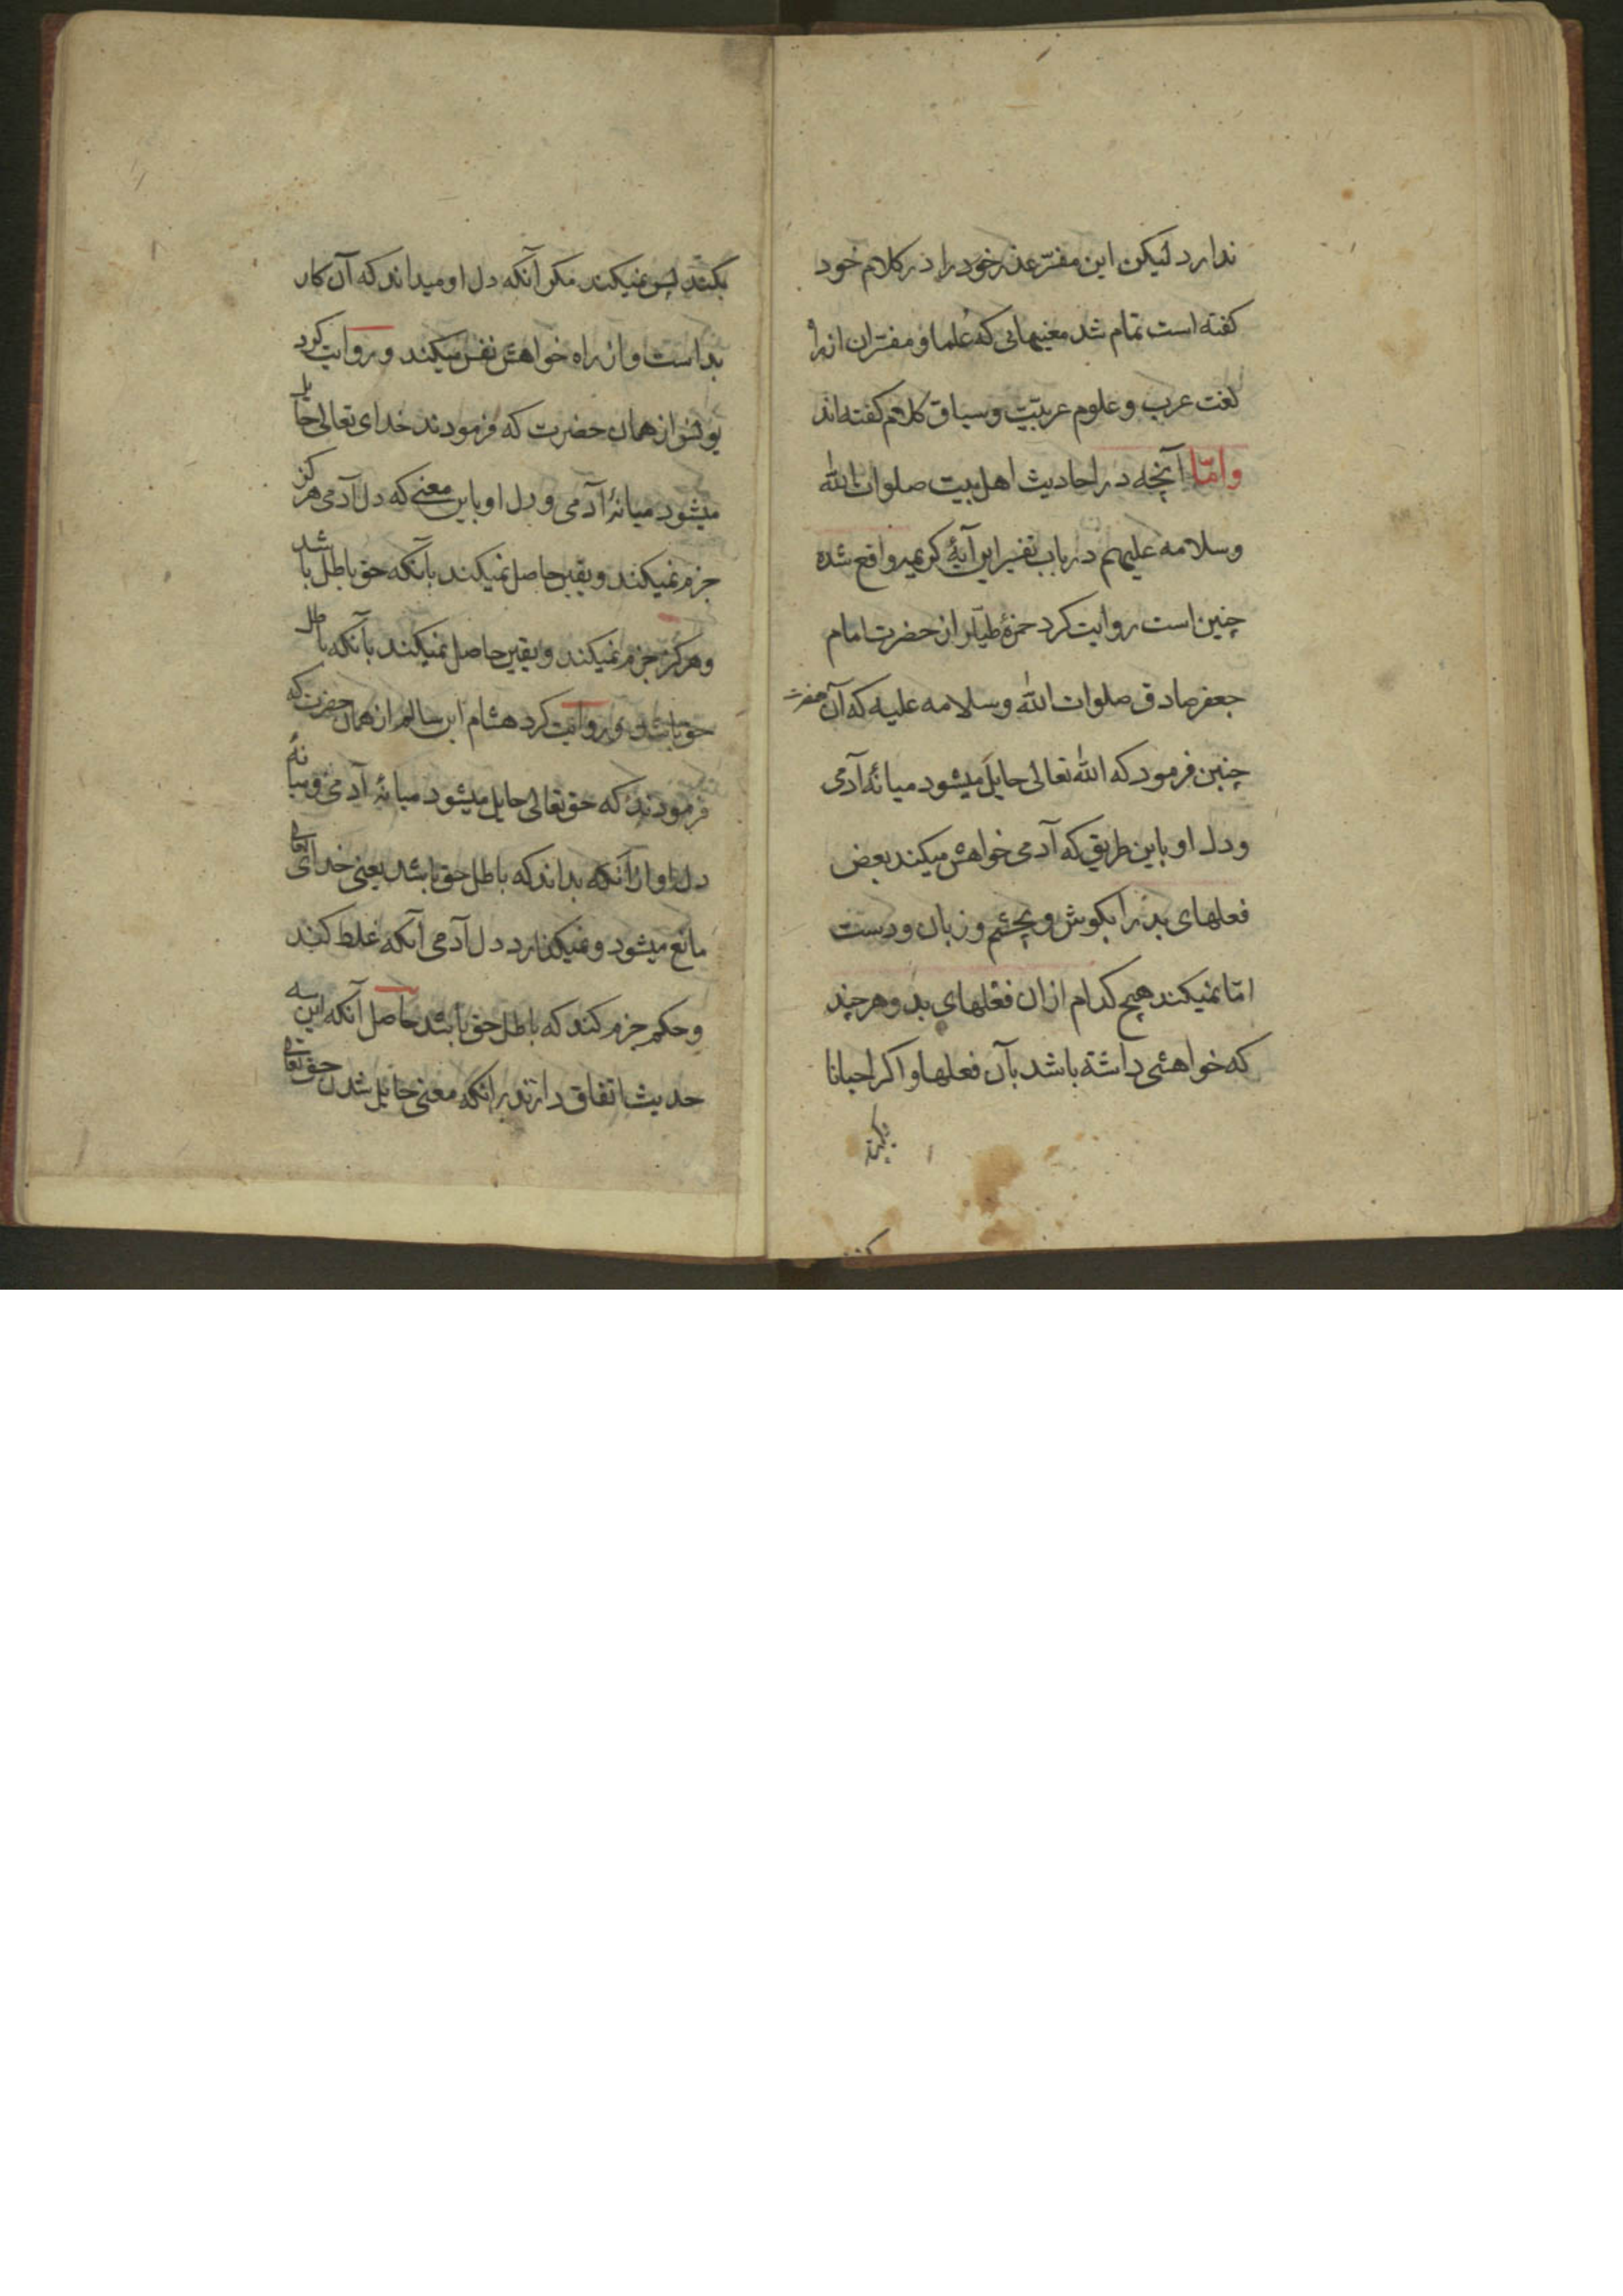 ندارد لیکن این مفسّر عذر خود را در کلام خود
کفته است تمام شد معنیهایی که علما و مفسّران از راه
لغت عرب و علوم عربیّت و سیاق کلام کفته‌اند
وامّا آنچه در احادیث اهل بیت صلوات الله
وسلامه علیهم در باب تفسیر این آیهٔ کریمه واقع شده
چنین است روایت کرد حمزهٔ طیّار از حضرت امام
جعفر صادق صلوات الله وسلامه علیه که آن حضرت
چنین فرمود که الله تعالی حایل میشود میانهٔ آدمی
ودل او باین طریق که آدمی خواهش میکند بعض
فعلهای بد را بکوش و بچشم و زبان و دست
امّا نمیکند هیچ کدام از ان فعلهای بد و هر چند
که خواهشی داشته باشد بآن فعلها و اکر احیانا
بکند
بکند پس نمیکند مکر آنکه دل او میداند که آن کار
بد است و از راه خواهش نفس میکند و روایت کرد
یونس از همان حضرت که فرمودند خدای تعالی حایل
میشود میانهٔ آدمی و دل او باین معنی که دل آدمی هرکز
جزم نمیکند و یقین حاصل نمیکند بآنکه حق باطل باشد
وهرکز جزم نمیکند و یقین حاصل نمیکند بآنکه باطل
حق باشد و روایت کرد هشام ابن سالم از همان حضرت که
فرمودند که حق تعالی حایل میشود میانهٔ آدمی و میانهٔ
دل او از آنکه بداند که باطل حق باشد یعنی خدای تعالی
مانع میشود و نمیکذارد دل آدمی آنکه غلط کند
وحکم جزم کند که باطل حق باشد حاصل آنکه این سه
حدیث اتفاق دارند در آنکه معنی حایل شدن حق تعالی